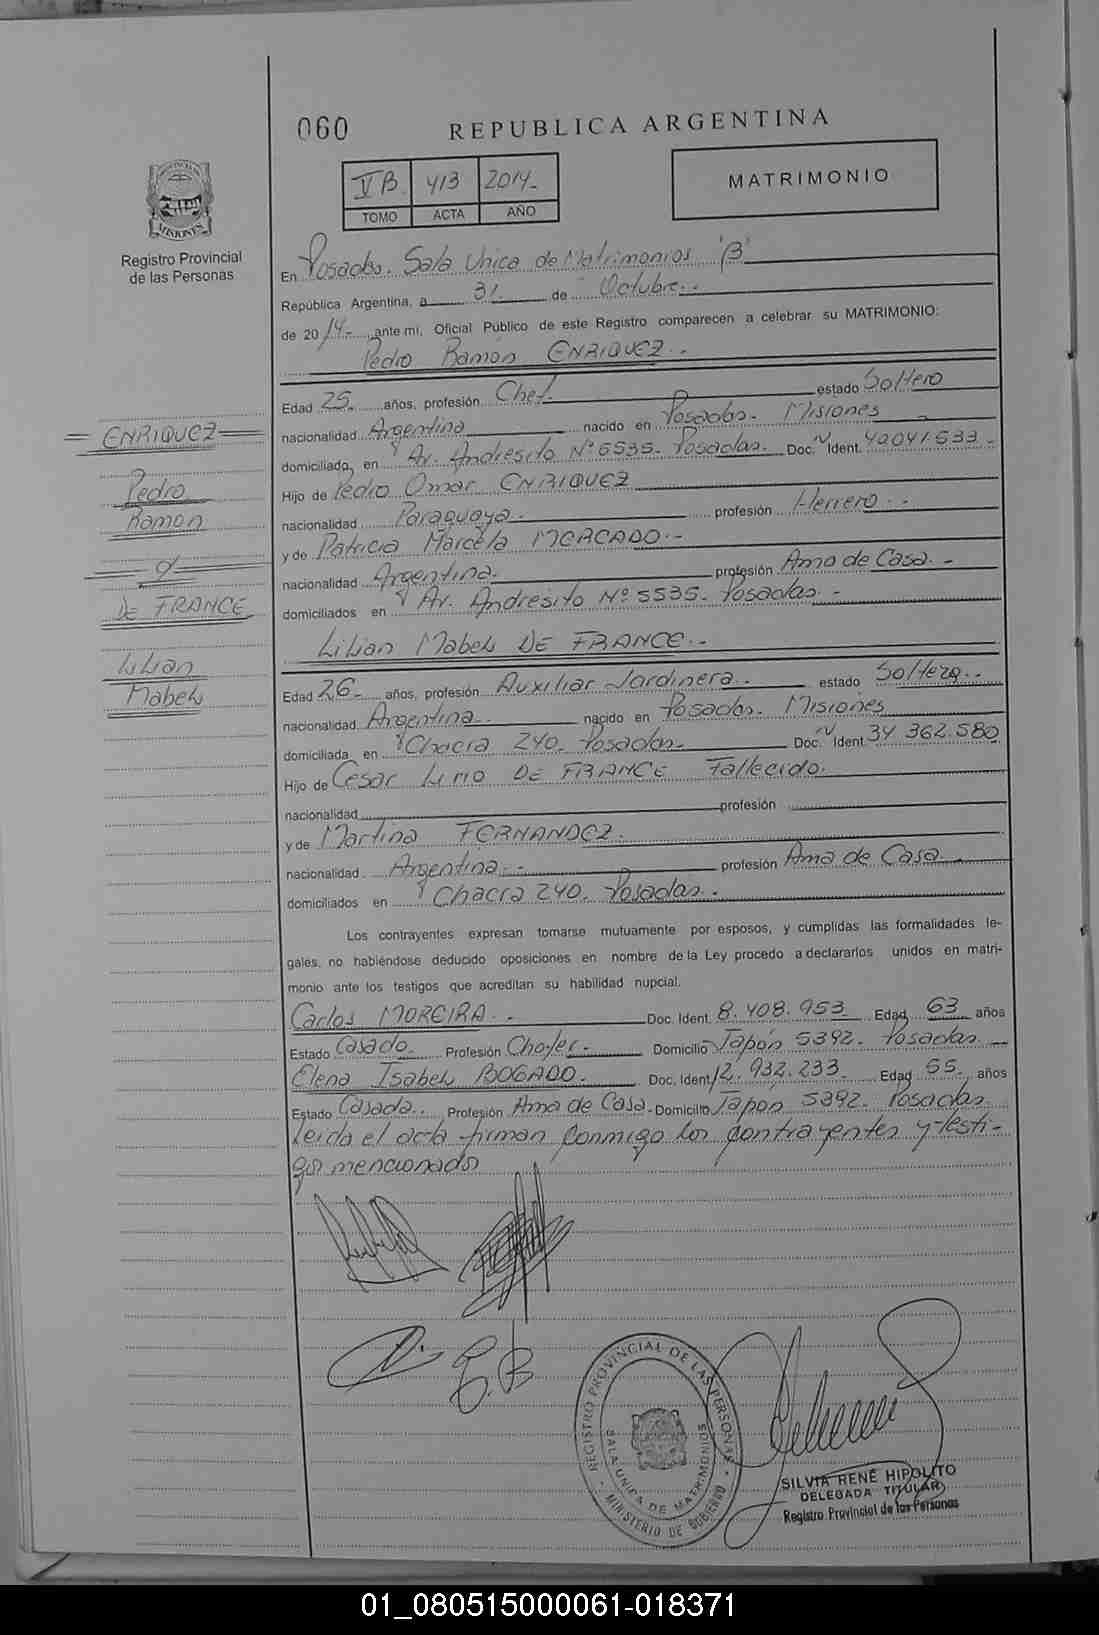 060
REPUBLICA ARGENTINA
PROVINCIA
MISIONES
Registro Provincial
de las Personas
V B 413 2014-
TOMO ACTA AÑO
MATRIMONIO
En Posadas. Sala Unica de Matrimonios "B"
República Argentina, a 31. de Octubre.-
de 2014- ante mi, Oficial Público de este Registro comparecen a celebrar su MATRIMONIO:
Pedro Ramón ENRIQUEZ.-
Edad 25. años, profesión Chef. estado Soltero
nacionalidad Argentina nacido en Posadas. Misiones -
domiciliado en Av. Andresito Nº 5535. Posadas. Doc. Ident. 42041.533.-
Hijo de Pedro Omar ENRIQUEZ
nacionalidad Paraguaya.- profesión Herrero.-
y de Patricia Marcela MERCADO.-
nacionalidad Argentina. profesión Ama de Casa.-
domiciliados en Av. Andresito Nº 5535. Posadas.-
Lilian Mabel DE FRANCE.-
Edad 26- años, profesión Auxiliar Jardinera.- estado Soltera.-
nacionalidad Argentina.- nacido en Posadas. Misiones
domiciliada en Chacra 240. Posadas- Doc. Ident. 34 362.580
Hijo de Cesar Lino DE FRANCE Fallecido.
nacionalidad profesión
y de Martina FERNANDEZ.
nacionalidad Argentina.- profesión Ama de Casa.
domiciliados en Chacra 240. Posadas.-
Los contrayentes expresan tomarse mutuamente por esposos, y cumplidas las formalidades le-
gales, no habiéndose deducido oposiciones en nombre de la Ley procedo a declararlos unidos en matri-
monio ante los testigos que acreditan su habilidad nupcial.
Carlos MOREIRA.- Doc. Ident. 8.408.953 Edad 63 años
Estado Casado Profesión Chofer.- Domicilio Japón 5392. Posadas.-
Elena Isabel BOGADO. Doc. Ident. 12.932.233. Edad 55. años
Estado Casada.. Profesión Ama de Casa. Domicilio Japón 5392. Posadas
Leida el acta firman conmigo los contrayentes y testi-
gos mencionados
ENRIQUEZ
Pedro
Ramon
y
DE FRANCE
Lilian
Mabel
REGISTRO PROVINCIAL DE LAS PERSONAS
SALA UNICA DE MATRIMONIOS
MINISTERIO DE GOBIERNO
SILVIA RENÉ HIPOLITO
DELEGADA TITULAR
Registro Provincial de las Personas
01_080515000061-018371